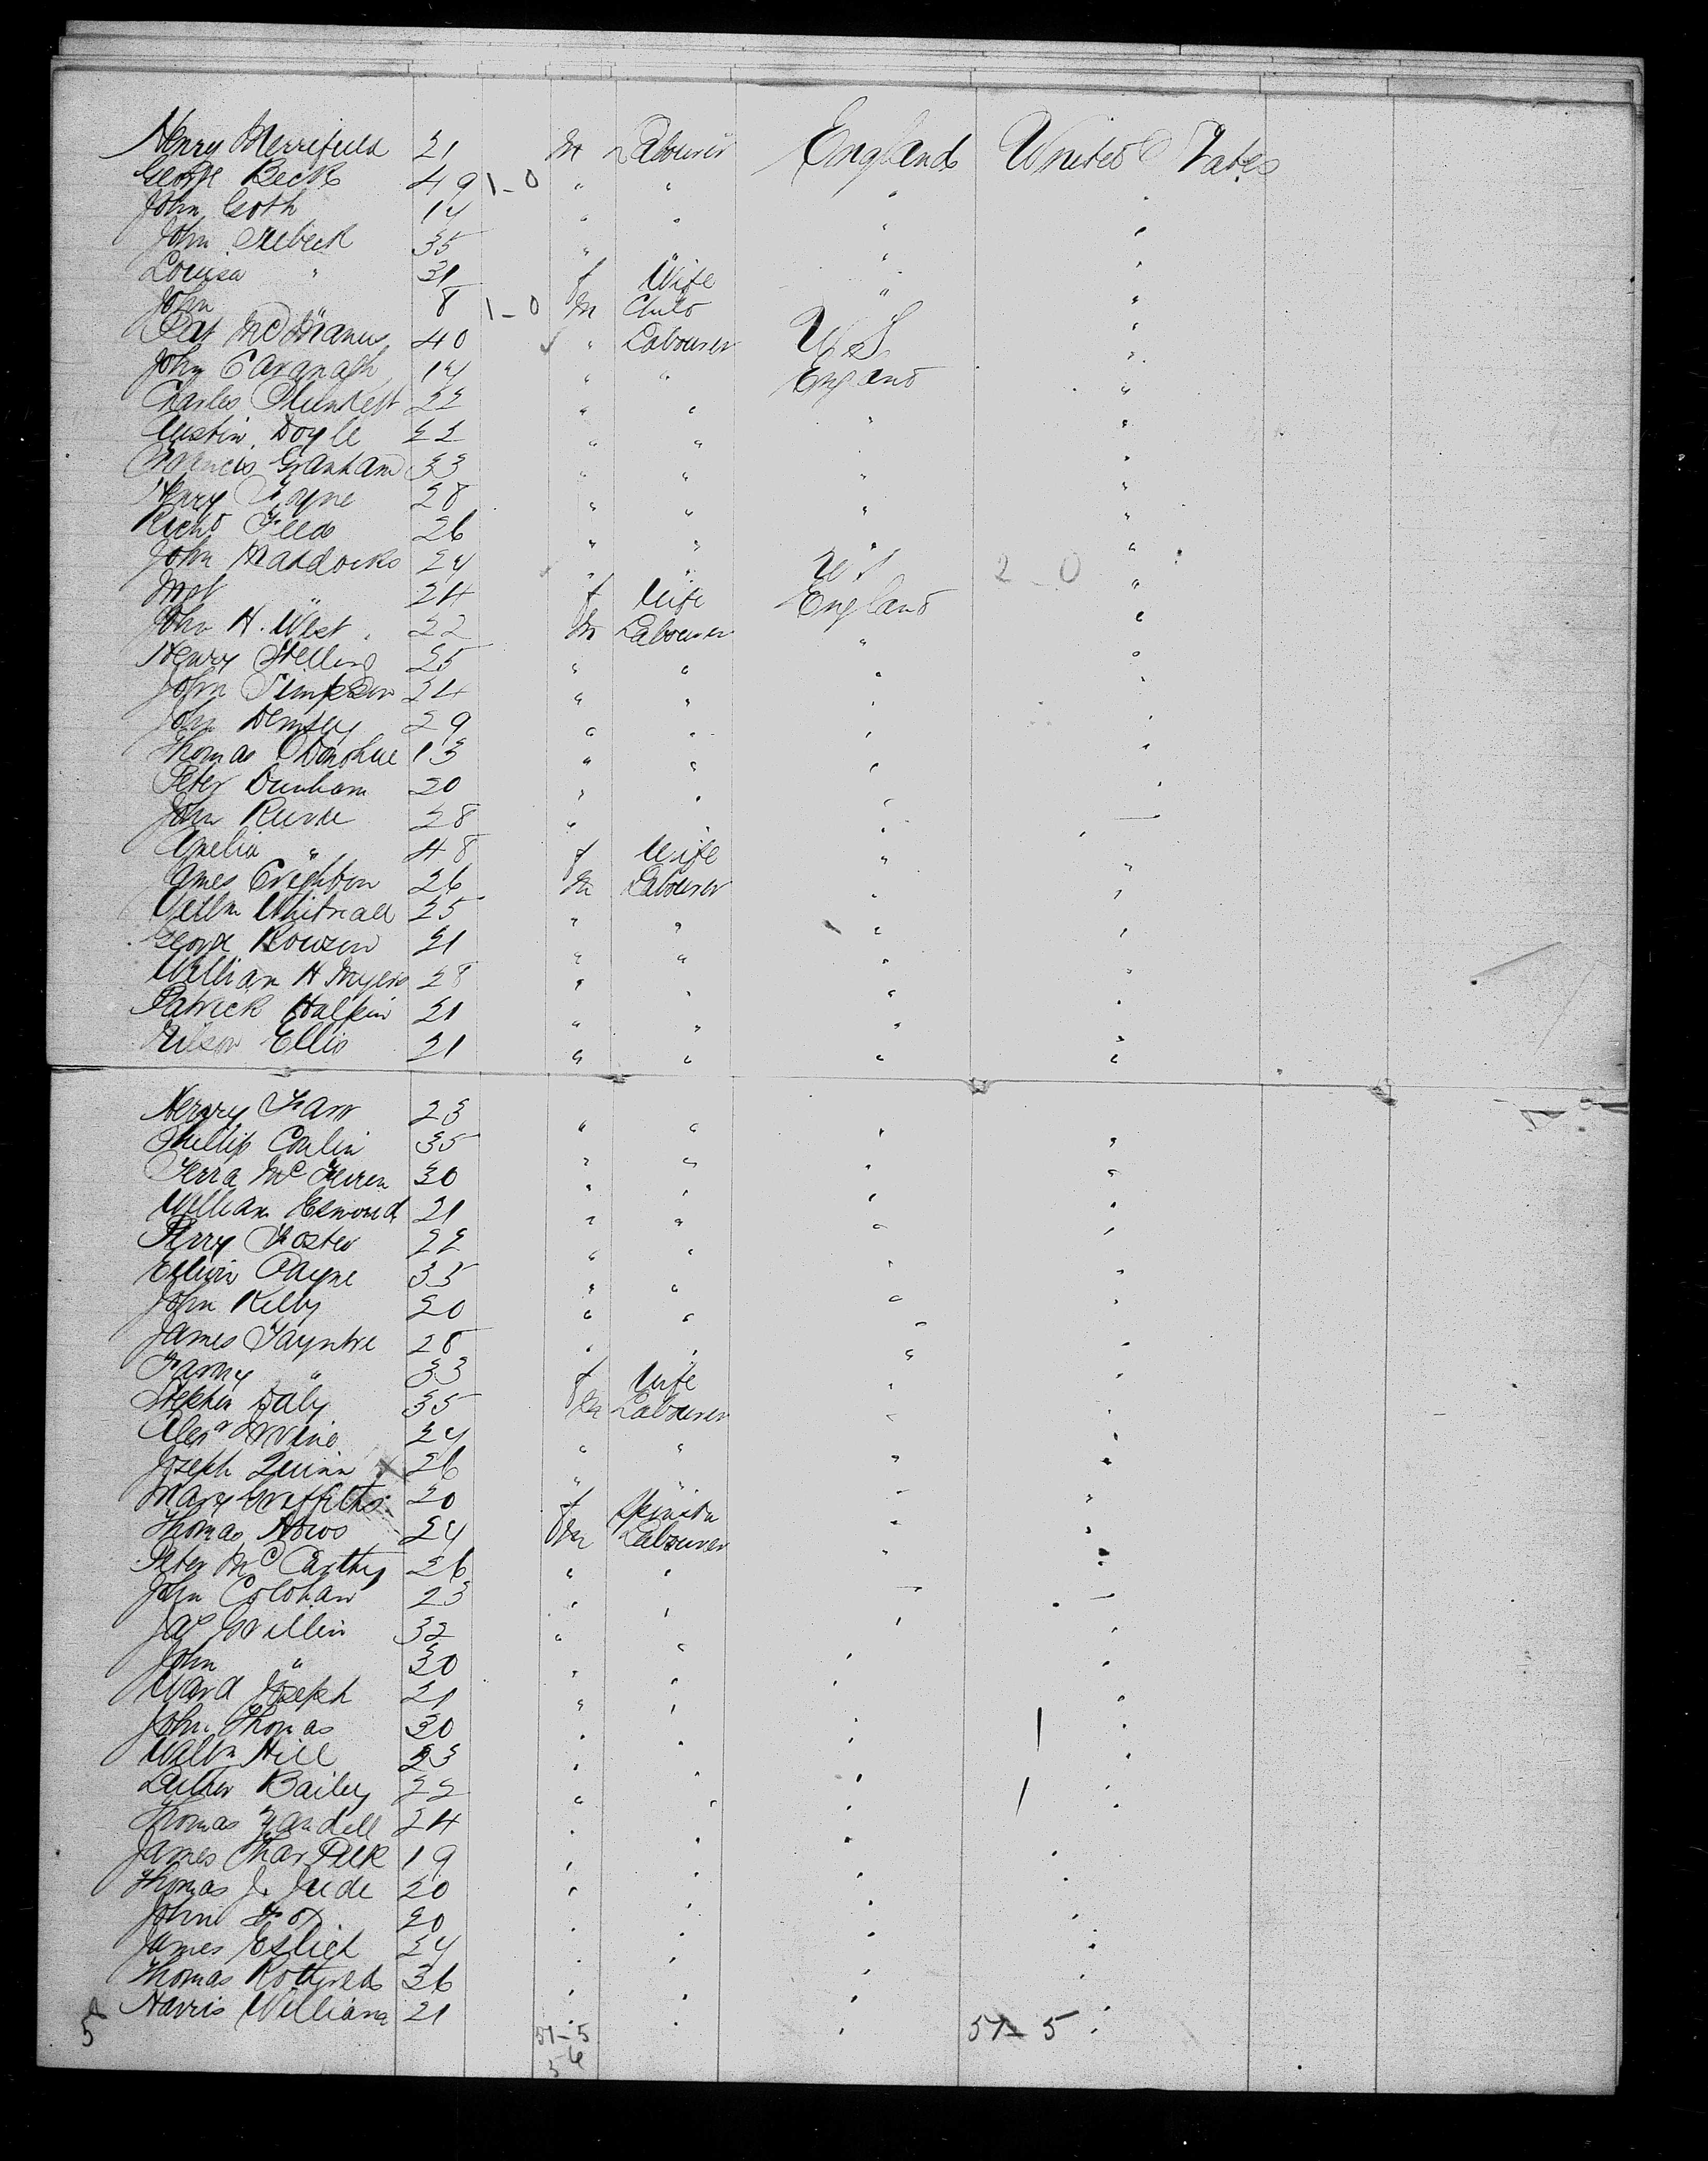 Henry Merrifield 21 m Labourer England United States
George Beck 49 1-0 " " " "
John Goth 14 " " " "
John 35 " " " "
Louisa " 31 f Wife " "
John " 8 1-0 m Child " "
Pat McManus 40 " Labourer U.S. "
John Cavanagh 14 " " England "
Charles Plunkett 22 " " " "
Austin Doyle 22 " " "
Francis Graham 33 " " " "
Henry 28 " " " "
Richd 26 " " " "
John Maddocks 24 " " U.S 2-0 "
Mrs " 24 f Wife England "
John H. West 22 m Labourer " "
Henry Stelling 25 " " " "
John Simpson 24 " " " "
John Demsey 29 " " " "
Thomas O'Donohue 13 " " " "
Peter Dunham 20 " " " "
John 28 " " " "
Amelia " 48 f Wife " "
James Creighton 26 m Labourer " "
Willm Whitnall 25 " " " "
George Rowson 21 " " " "
William H Myers 28 " " " "
Patrick Halpin 21 " " " "
Wilson Ellis 21 " " " "
Henry 23 " " " "
Phillip Conlin 35 " " " "
Mc 30 " " " "
William Esmond 21 " " " "
Perry Foster 22 " " " "
Edwin Payne 35 " " " "
John Kelly 20 " " " "
James 28 " " " "
Fanny " 33 f Wife " "
Stephen Daly 35 m Labourer " "
Alexr Irvine 24 " " " "
Joseph Quinn 26 " " " "
Mary Griffiths 20 f Spinster " "
Thomas 24 m Labourer " "
Peter McCarthy 26 " " " "
John Colohan 23 " " " "
Jas 32 " " " "
John " 30 " " " "
Ward Joseph 21 " " " "
John Thomas 30 " " " "
Willm Hill 23 " " " "
Luther Bailey 22 " " " "
Thomas Yandell 24 " " " "
James Char Pelk 19 " " " "
Thomas J. Jude 20 " " " "
John Fox 20 " " " "
James 24 " " " "
Thomas 36 " " " "
Harris William 21 " " " "
58 51-5 57-5
56